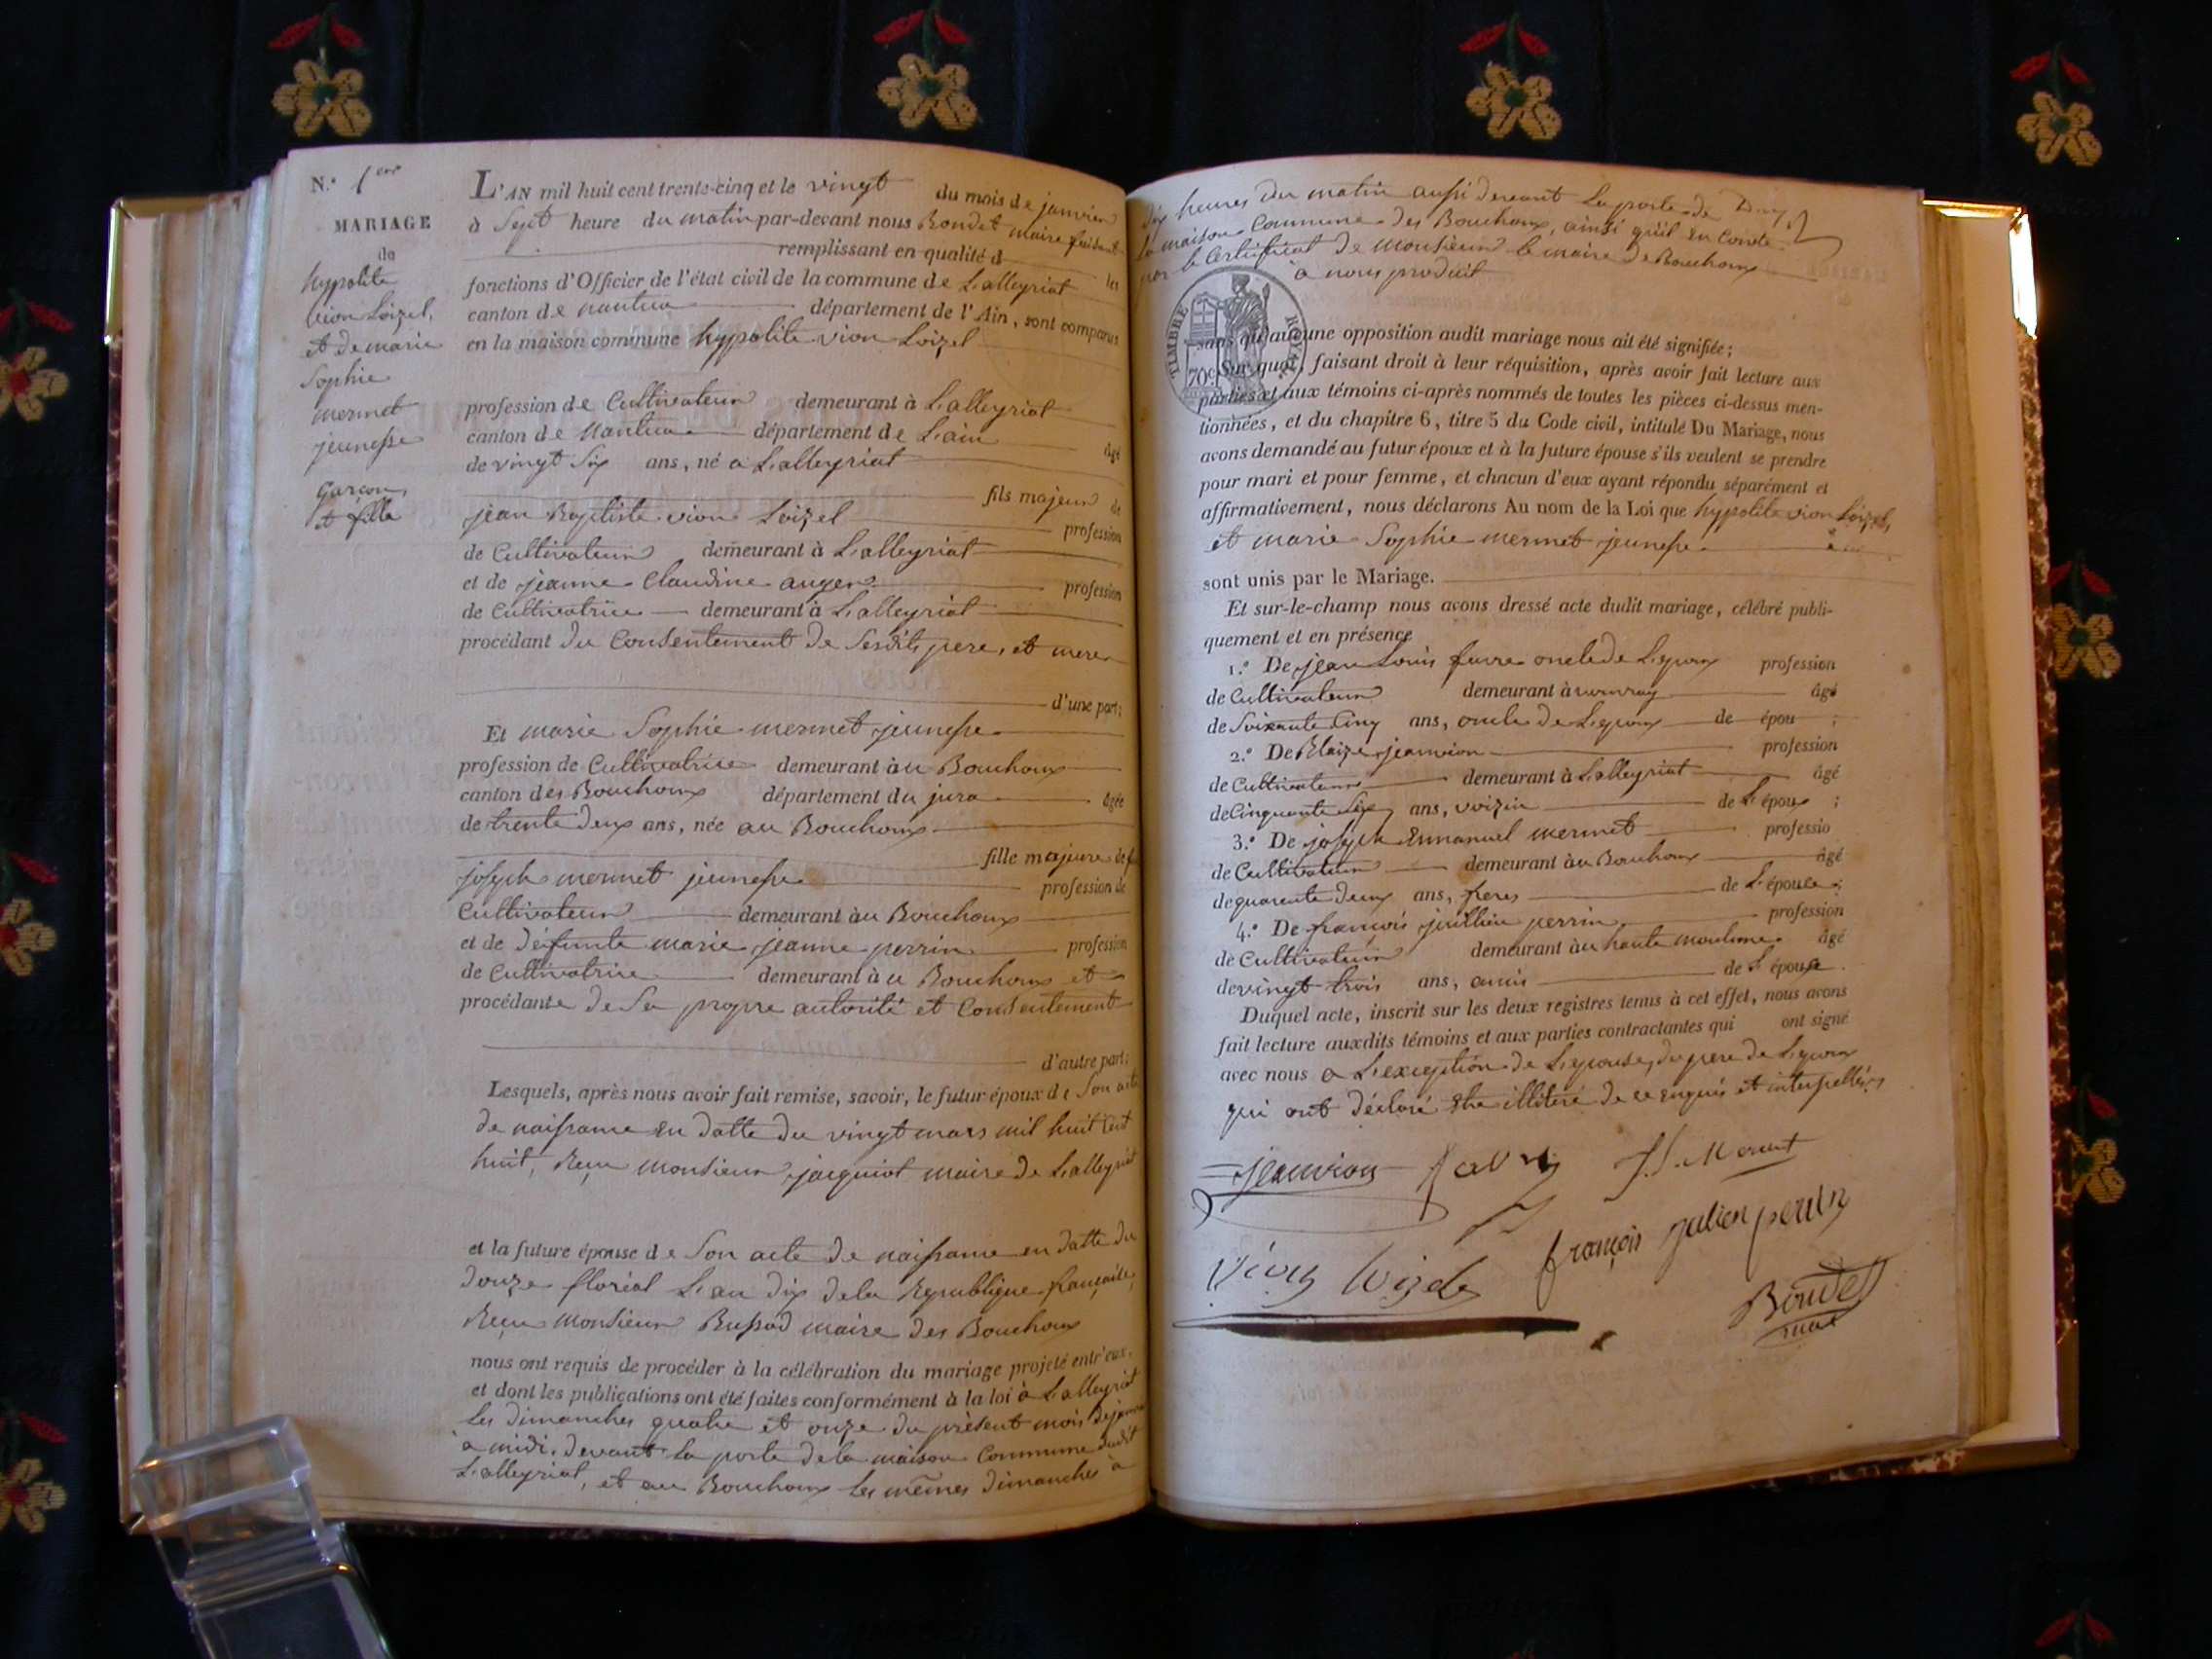 N.° 1er
MARIAGE
de
hypolite
vion Loizel,
et de marie
Sophie
mermet
jeunesse
garçon,
et fille
L'AN mil huit cent trente-cinq et le vingt du mois de janvier
à Sept heure du matin par-devant nous Bondet maire faisant
remplissant en qualité d les
fonctions d'Officier de l'état civil de la commune de Lalleyriat
canton de nantua département de l'Ain, sont comparus
en la maison commune hypolite vion Loizel
profession de Cultivateur demeurant à Lalleyriat
canton de Nantua département de L'ain âgé
de vingt Six ans, né à Lalleyriat
fils majeur de
jean Baptiste vion Loizel profession
de Cultivateur demeurant à Lalleyriat
et de jeanne Claudine auger profession
de Cultivatrice demeurant à Lalleyriat
procédant du Consentement de Sesdits pere, et mere
d'une part;
Et marie Sophie mermet jeunesse
profession de Cultivatrice demeurant au Bouchoux
canton des Bouchoux département du jura âgée
de trente deux ans, née au Bouchoux
fille majeure de
joseph mermet jeunesse profession de
Cultivateur demeurant au Bouchoux
et de défunte marie jeanne perrin profession
de Cultivatrice demeurant au Bouchoux et
procédante de Sa propre autorité et Consentement
d'autre part;
Lesquels, après nous avoir fait remise, savoir, le futur époux de Son acte
de naissance en datte du vingt mars mil huit Cent
huit, Reçu monsieur jacquiot maire de Lalleyriat
et la future épouse de Son acte de naissance en datte du
douze floréal L'an dix de la Republique française,
Reçu monsieur Bussod maire des Bouchoux
nous ont requis de procéder à la célébration du mariage projeté entr'eux,
et dont les publications ont été faites conformément à la loi à Lalleyriat
les dimanches quatre et onze du présent mois de janvier
à midi, devant la porte de la maison Commune dudit
Lalleyriat, et au Bouchoux les mêmes dimanches à
dix heures du matin aussi devant la porte de
la maison Commune des Bouchoux, ainsi qu'il en Conste
par le Certificat de monsieur le maire de Bouchoux
à nous produit
TIMBRE ROYAL
70c
sans qu'aucune opposition audit mariage nous ait été signifiée;
Sur quoi, faisant droit à leur réquisition, après avoir fait lecture aux
parties et aux témoins ci-après nommés de toutes les pièces ci-dessus men-
tionnées, et du chapitre 6, titre 5 du Code civil, intitulé Du Mariage, nous
avons demandé au futur époux et à la future épouse s'ils veulent se prendre
pour mari et pour femme, et chacun d'eux ayant répondu séparément et
affirmativement, nous déclarons Au nom de la Loi que hypolite vion Loizel,
et marie Sophie mermet jeunesse
sont unis par le Mariage.
Et sur-le-champ nous avons dressé acte dudit mariage, célébré publi-
quement et en présence
1.° De jean Louis favre oncle de L'epoux profession
de Cultivateur demeurant à âgé
de Soixante Cinq ans, oncle de L'epoux de épou ;
2.° De Blaize jeanvion profession
de Cultivateur demeurant à Lalleyriat âgé
de Cinquante Six ans, voizin de L'époux ;
3.° De joseph Emmanuel mermet professio
de Cultivateur demeurant au Bouchoux âgé
de quarante deux ans, frere de L'épouse ;
4.° De françois juillien perrin profession
de Cultivateur demeurant au haute moulune âgé
de vingt trois ans, amis de L'épouse.
Duquel acte, inscrit sur les deux registres tenus à cet effet, nous avons
fait lecture auxdits témoins et aux parties contractantes qui ont signé
avec nous a L'exception de L'epouse, du pere de L'epoux
qui ont déclaré être illitéré de ce enquis et interpellés
jeanvion favre J. J. Mermet
françois julien perrin
vion loizel
Bondet
maire